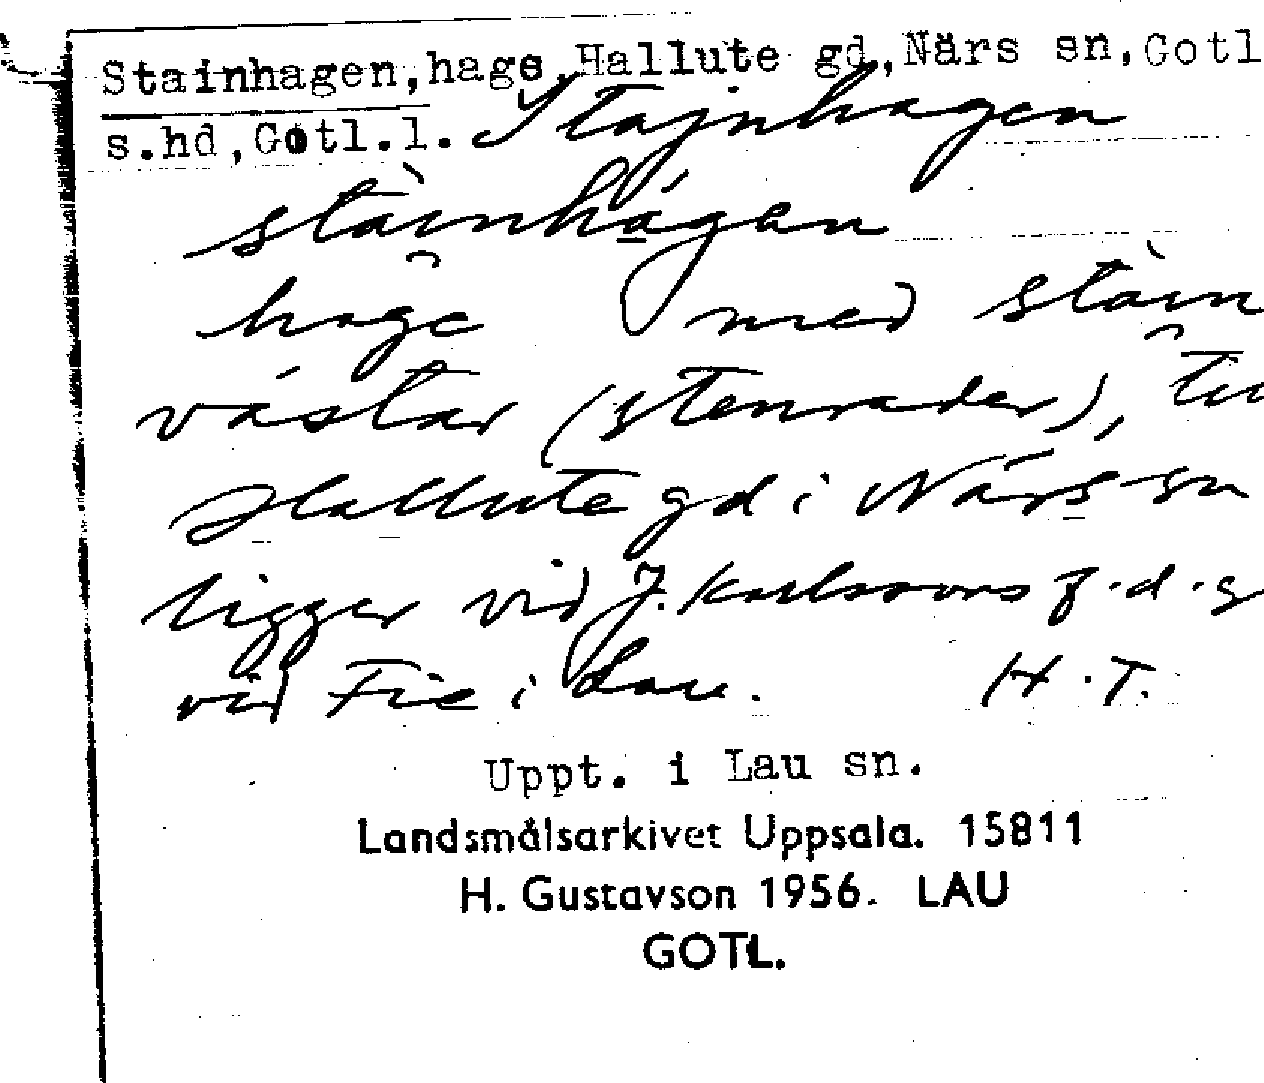 Stainhagen,hage,Hallute gd,Närs sn,Gotl
s.hd,Gotl.l. Stajnhagen
stàinhágan
hage med stain
västar (stenrader),
Hallute gd i Närs sn
ligger vid J. Karlssons f.d.g
vid Fie i Lau. H.T.
Uppt. i Lau sn.
Landsmålsarkivet Uppsala. 15811
H. Gustavson 1956. LAU
GOTL.